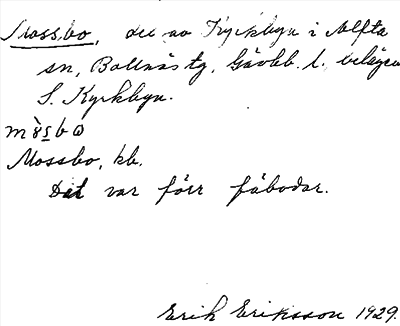 Mossbo, del av Kyrkbyn i Alfta
sn, Bollnäs tg, Gävleb. l. belägen
S. Kyrkbyn.
Mossbo, kb.
Det var förr fäbodar.
Erik Eriksson 1929.